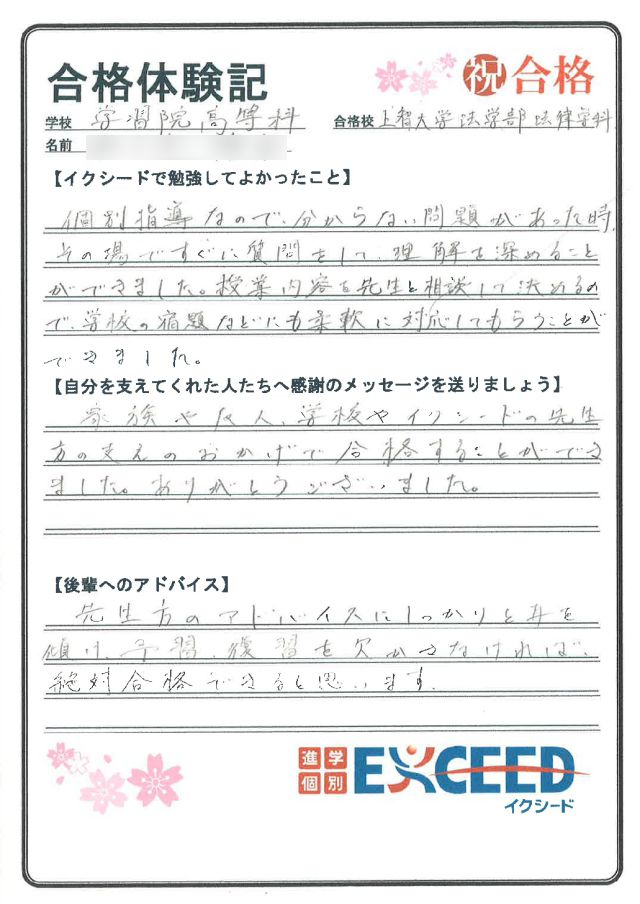 合格体験記
祝 合格
学校 学習院高等科
合格校 上智大学 法学部 法律学科
名前
【イクシードで勉強してよかったこと】
個別指導なので、分からない問題があった時、
その場ですぐに質問をして、理解を深めること
ができました。授業内容を先生と相談して決めるの
で、学校の宿題などにも柔軟に対応してもらうことが
できました。
【自分を支えてくれた人たちへ感謝のメッセージを送りましょう】
家族や友人、学校やイクシードの先生
方の支えのおかげで合格することができ
ました。ありがとうございました。
【後輩へのアドバイス】
先生方のアドバイスにしっかりと耳を
傾け、予習、復習を欠かさなければ、
絶対合格できると思います。
進学
個別
EXCEED
イクシード